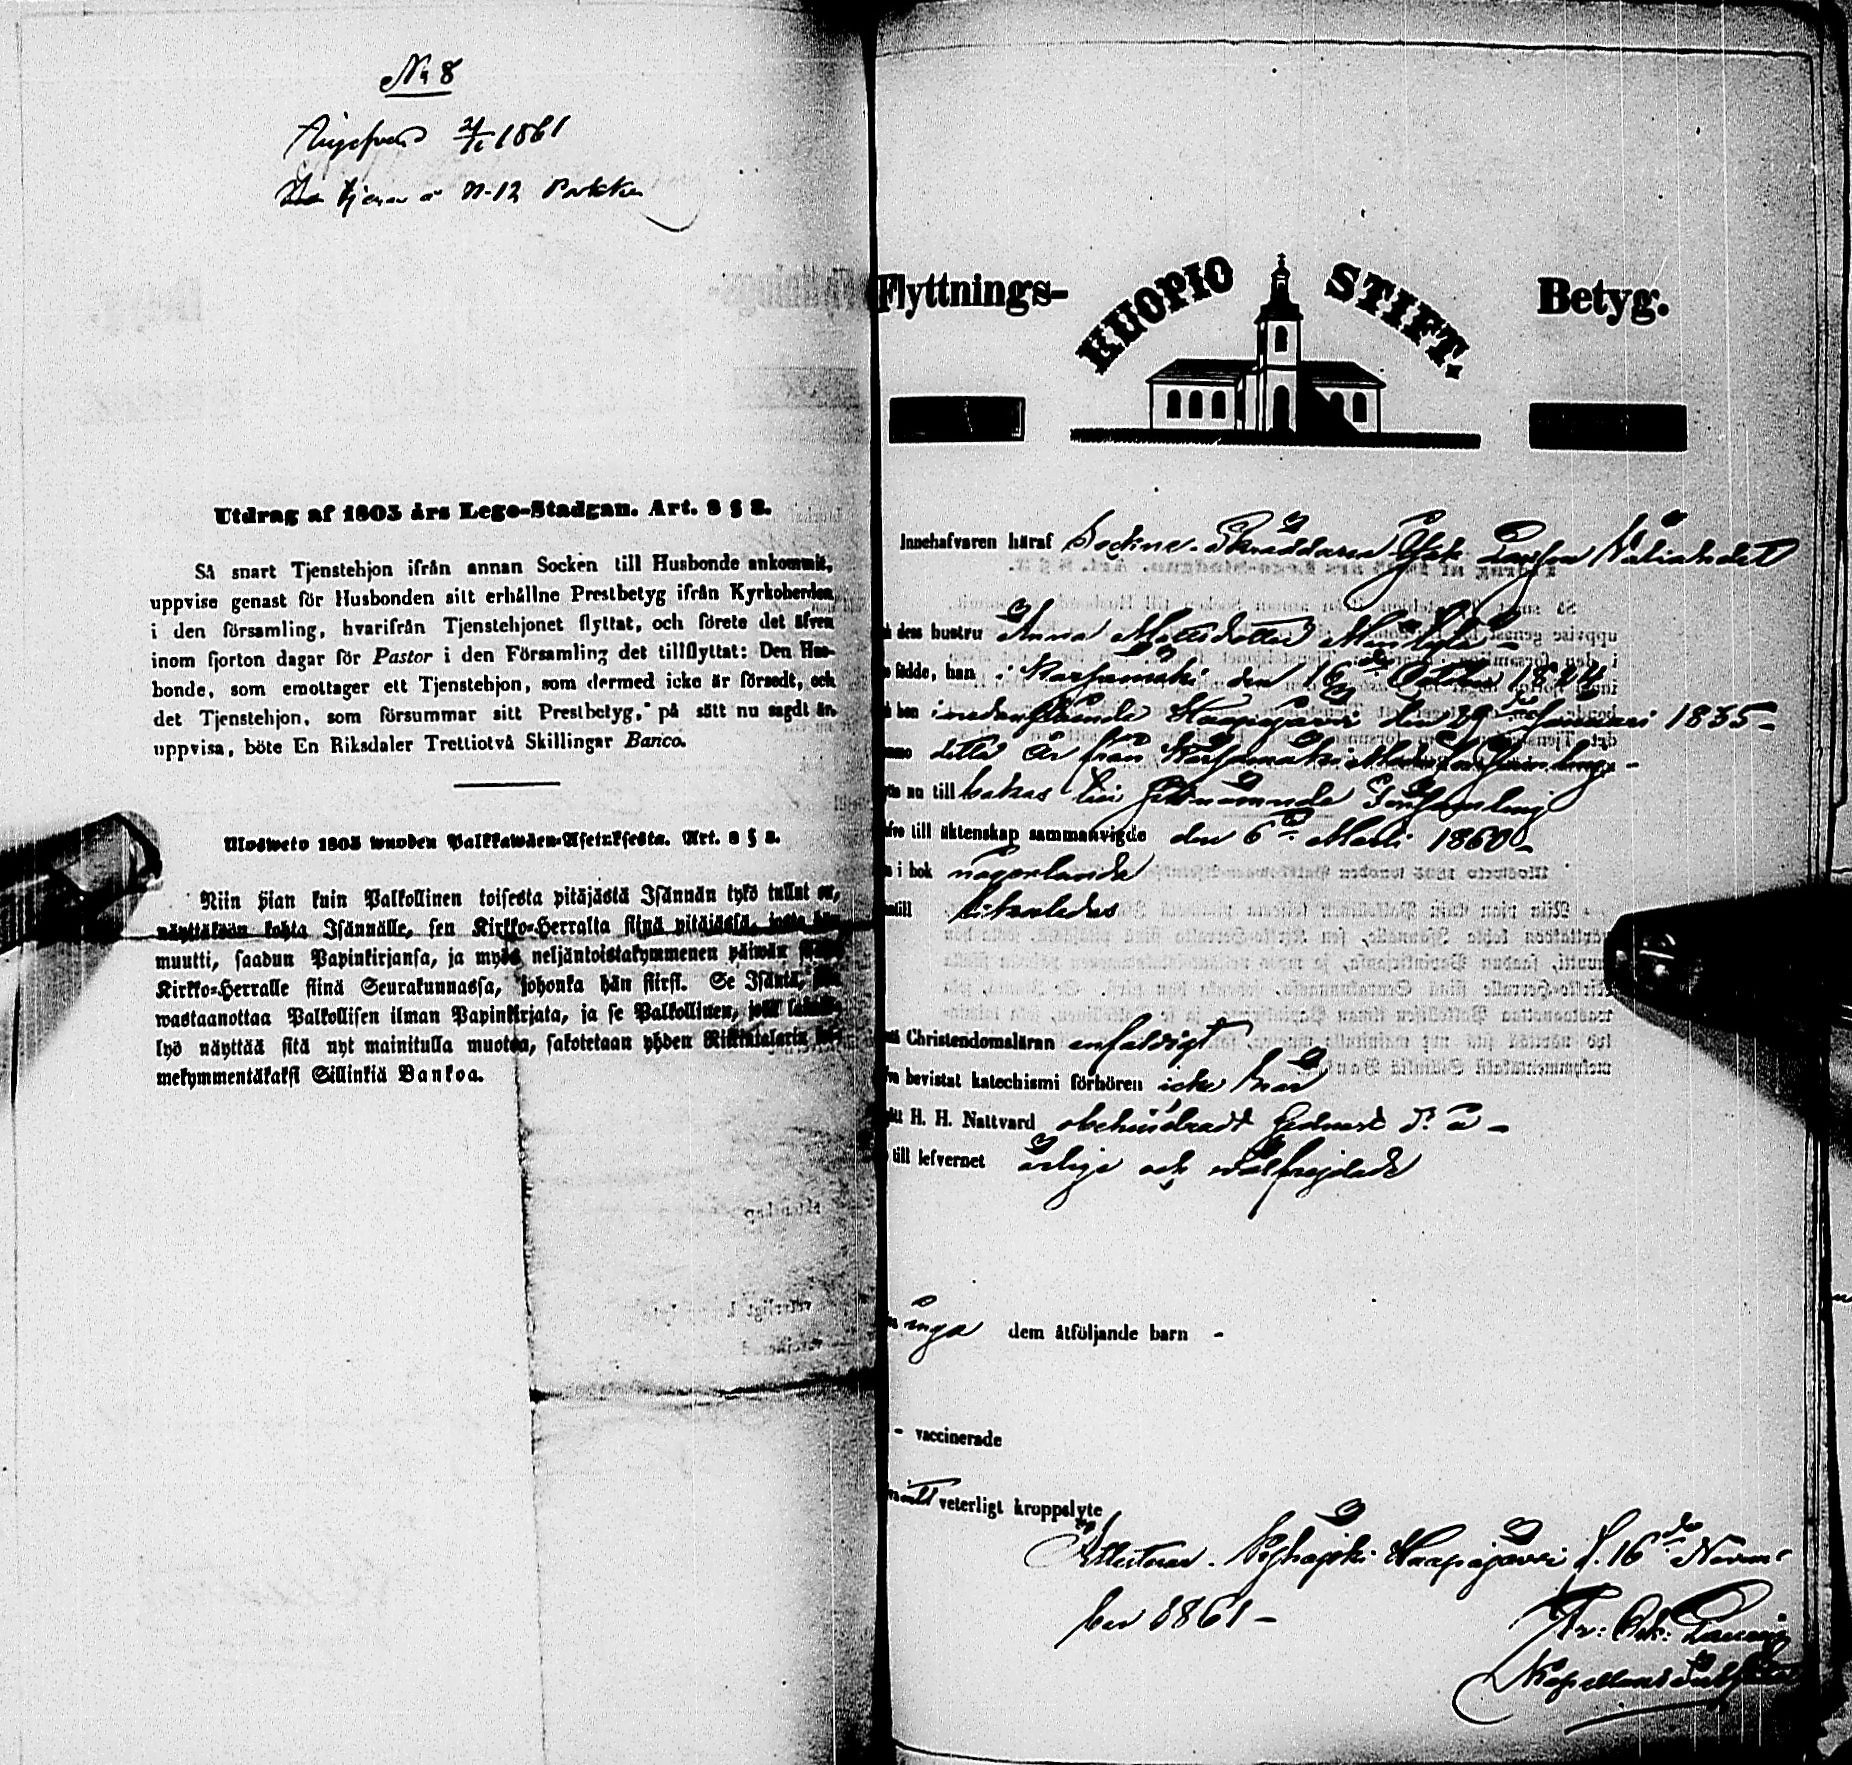 No 8
1861
N-12
Utdrag af 1805 års Lego-Stadgan. Art. 8 § 2.
Så snart Tjenstehjon ifrån annan Socken till Husbonde ankommit,
uppvise genast för Husbonden sitt erhållne Prestbetyg ifrån Kyrkoherden
i den församling, hvarifrån Tjenstehjonet flyttat, och förete det äfven
inom fjorton dagar för Pastor i den Församling det tillflyttat: Den Hus-
bonde, som emottager ett Tjenstehjon, som dermed icke är försedt, och
det Tjenstehjon, som försummar sitt Prestbetyg, på sätt nu sagdt är,
uppvisa, böte En Riksdaler Trettiotvå Skillingar Banco.
Ulosweto 1805 wuoden Palkkawäen-Asetuksesta. Art. 8 § 2.
Niin pian kuin Palkollinen toisesta pitäjästä Isännän tykö tullut on,
näyttäkään kohta Isännälle, sen Kirkko-Herralta siinä pitäjässä, josta hän
muutti, saadun Papinkirjansa, ja myös neljäntoistakymmenen päiwän
Kirkko-Herralle siinä Seurakunnassa, johonka hän siirsi. Se Isäntä,
wastaanottaa Palkollisen ilman Papinkirjata, ja se Palkollinen, joka
lyö näyttää sitä nyt mainitulla muotoa, sakotetaan yhden Riikintalarin
mekymmentäkaksi Sillinkiä Bankoa.
Flyttnings- KUOPIO STIFT. Betyg.
Innehafvaren häraf Sockne-Skräddaren
dess hustru Anna Mattsdotter
födde, han i Kärsämäki den 16de October 1824
hon i nedanstående Haapajärvi den 29 Januari 1835-
detta år från Kärsämäki
nu till bakas till sistnämnde Församling
till äktenskap sammanvigde den 6te Martii 1860-
i bok någorlunda
till likaledes
Christendomsläran enfaldigt
bevistat katechismi förhören icke här
H. H. Nattvard obehindradt
till lefvernet ärlige och välfrejdade
inga dem åtföljande barn -
- vaccinerade
veterligt kroppslyte
Attesterar. Haapajärvi d. 16de Novem-
ber 1861-